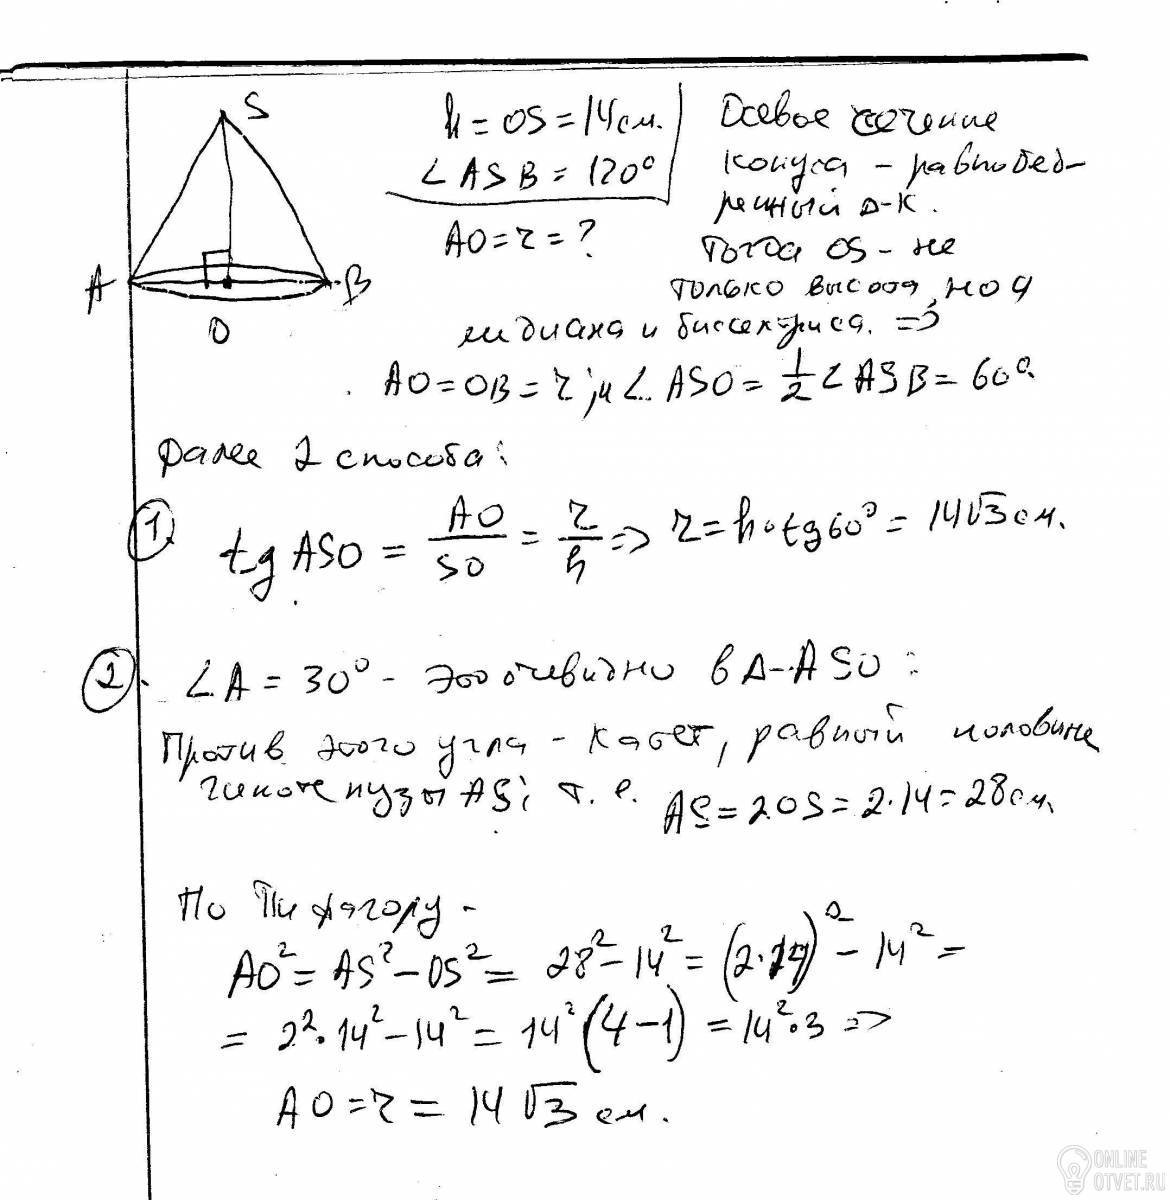 S
A
B
O
h = OS = 14 см.
∠ASB = 120°
AO = r = ?
Осевое сечение
конуса – равнобед-
ренный Δ-к.
Тогда OS – не
только высота, но и
медиана и биссектриса. ⇒
AO = OB = r; и ∠ASO = 1/2 ∠ASB = 60°.
Далее 2 способа:
1. tg ASO = AO/SO = r/h ⇒ r = h·tg60° = 14√3 см.
2. ∠A = 30° – это очевидно в Δ-ASO:
Против этого угла – катет, равный половине
гипотенузы AS; т. е. AS = 2OS = 2·14 = 28 см.
По Пифагору –
AO² = AS² – OS² = 28² – 14² = (2·14)² – 14² =
= 2²·14² – 14² = 14²(4 – 1) = 14²·3 ⇒
AO = r = 14√3 см.
ONLINE
OTVET.RU